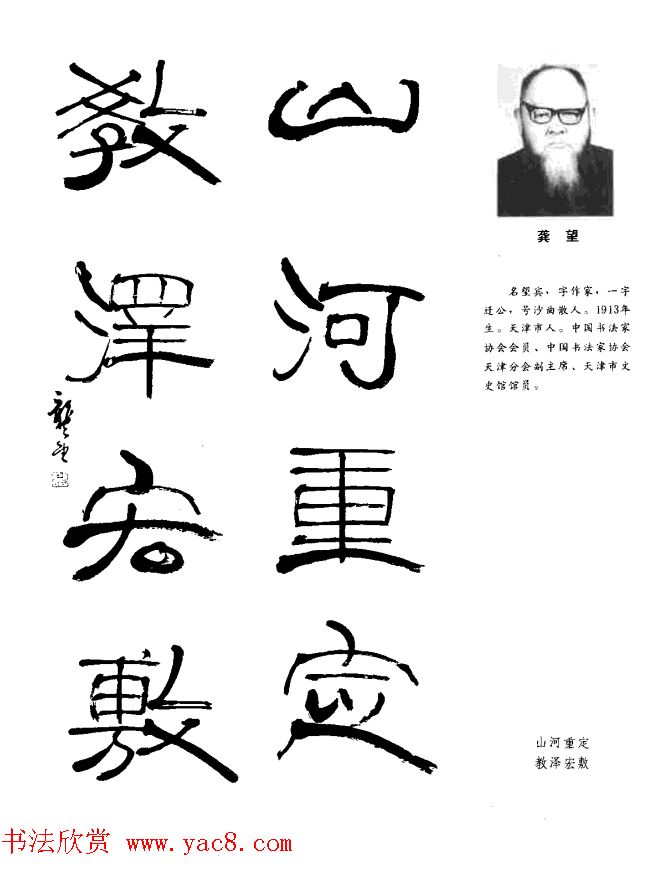 山河重定
教澤宏敷
龔望
龚望
名望宾,字作家,一字
迂公,号沙曲散人。1913年
生。天津市人。中国书法家
协会会员、中国书法家协会
天津分会副主席、天津市文
史馆馆员。
山河重定
教泽宏敷
书法欣赏 www.yac8.com